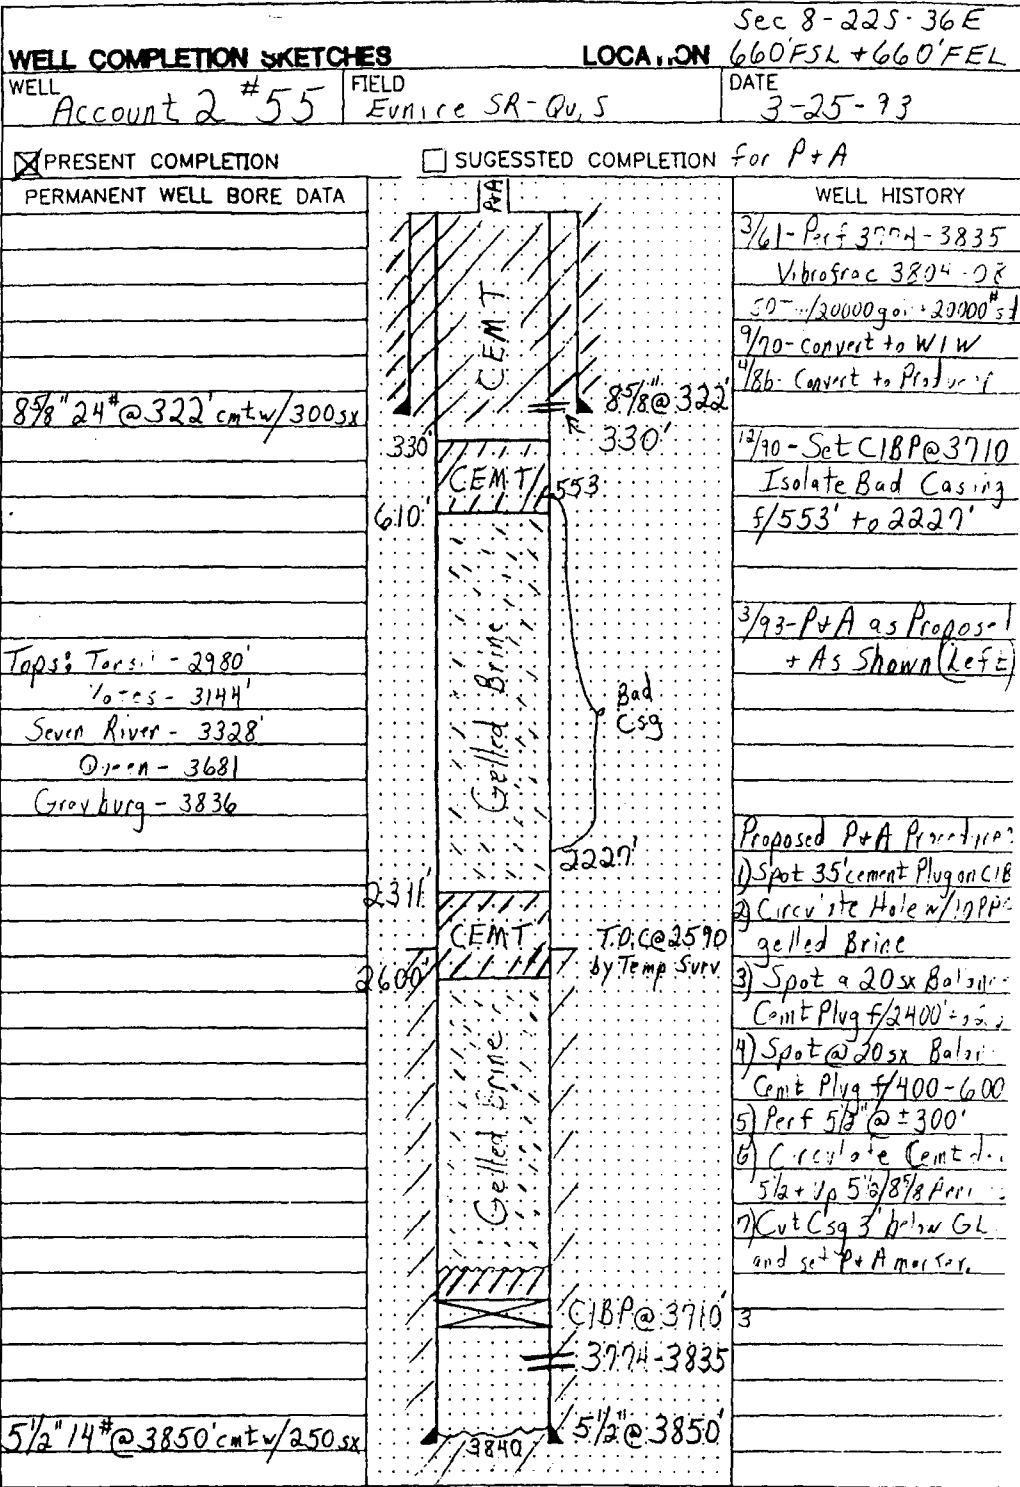 Sec 8-22S-36E
WELL COMPLETION SKETCHES LOCATION 660'FSL + 660'FEL
WELL Account 2 #55
FIELD Eunice SR-Qu, S
DATE 3-25-93
PRESENT COMPLETION
SUGESSTED COMPLETION for P+A
PERMANENT WELL BORE DATA
8 5/8" 24# @ 322' cmt w/ 300 sx
Tops: - 2980'
- 3144'
Seven River - 3328'
Queen - 3681
Grayburg - 3836
5 1/2" 14# @ 3850' cmt w/ 250 sx
P+A
CEMT
8 5/8" @ 322'
330'
330'
CEMT
553
610'
Gelled Brine
Bad
Csg
2227'
2311'
CEMT
T.O.C @ 2590
by Temp Surv
2600'
Gelled Brine
CIBP @ 3710'
3774-3835
5 1/2" @ 3850'
3840
WELL HISTORY
3/61 - Perf - 3835
Vibrofrac 3804-08
/20000 + 20000#
9/70 - Convert to WIW
4/86 - Convert to
12/90 - Set CIBP @ 3710
Isolate Bad Casing
f/553' to 2227'
3/93 - P+A as
+ As Shown (Left)
Proposed P+A
1) Spot 35' cement Plug on CIB
2) Hole w/
gelled Brine
3) Spot a 20 sx
Cemt Plug f/2400'
4) Spot @ 20 sx
Cemt Plug f/400-600
5) Perf 5 1/2" @ ± 300'
6) Circulate Cemt
5 1/2 + Up 5 1/2/8 5/8
7) Cut Csg 3' below GL
and set P+A marker.
3